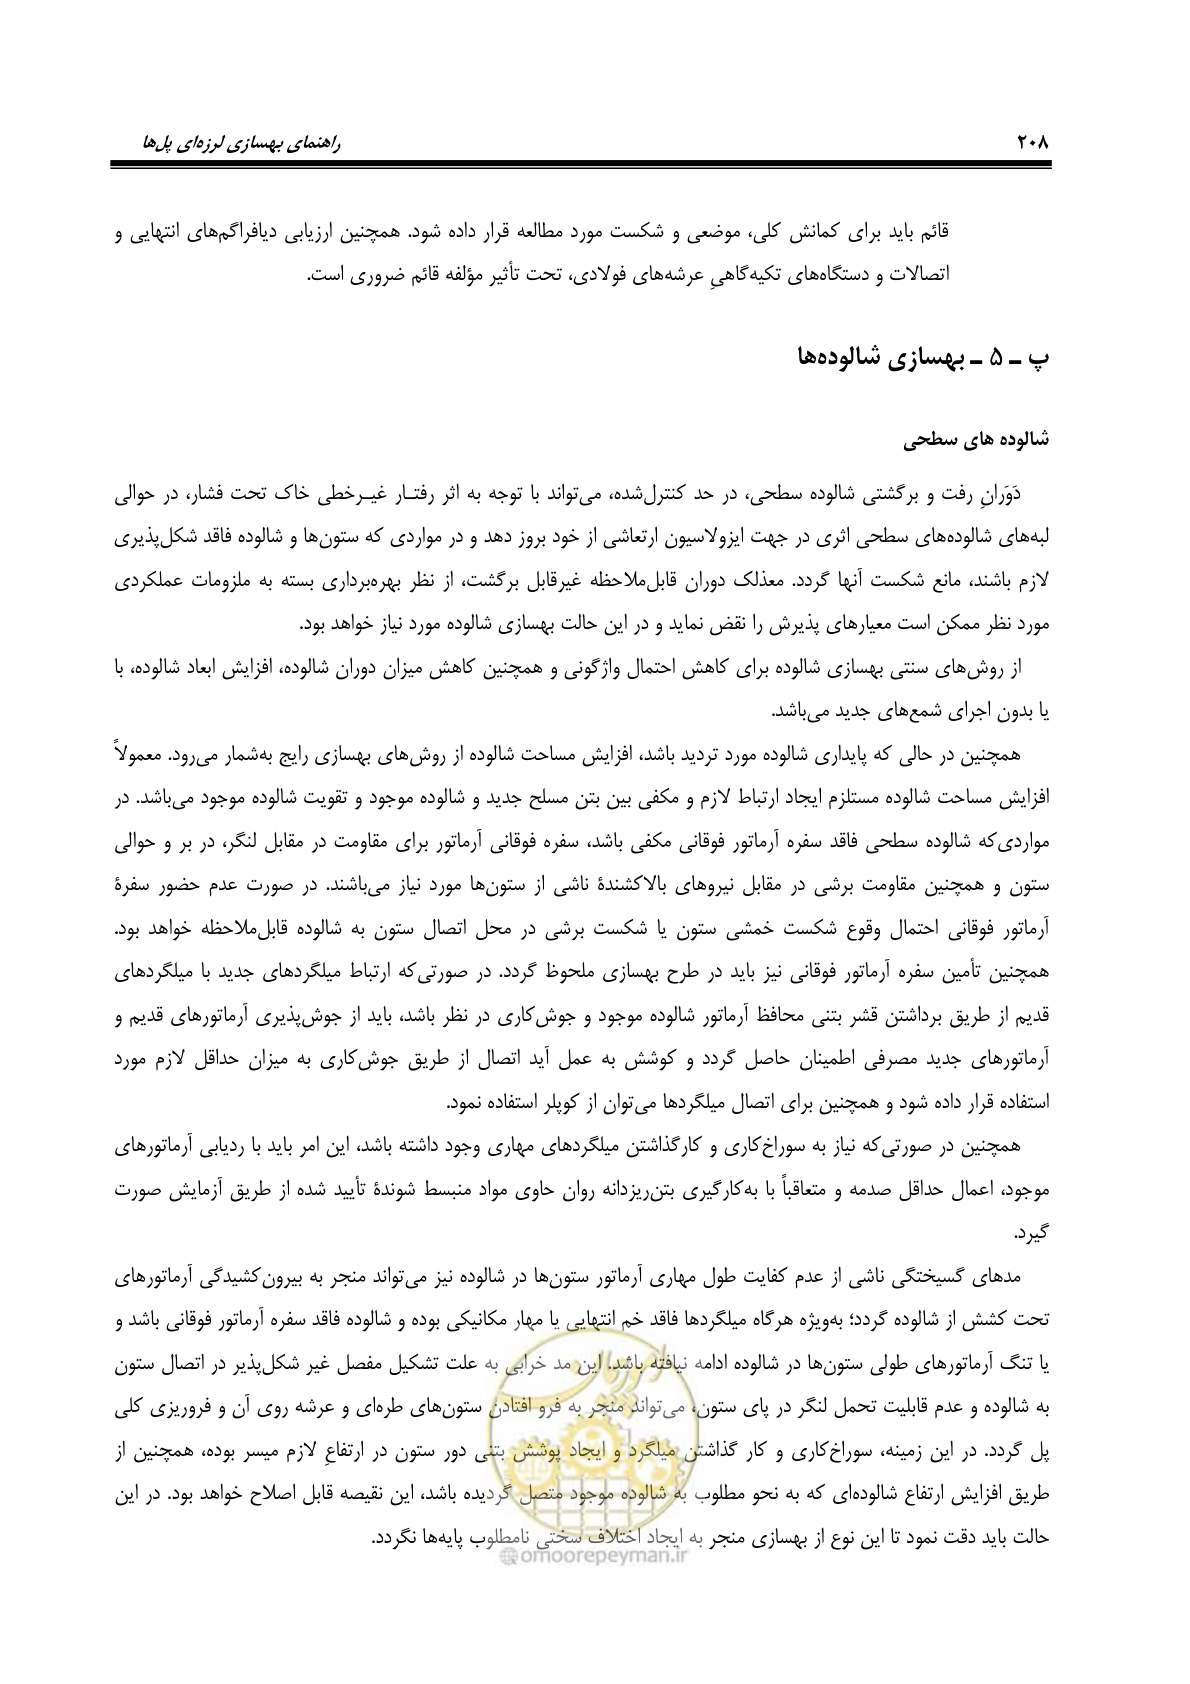 ۲۰۸
راهنمای بهسازی لرزه‌ای پل‌ها
قائم باید برای کمانش کلی، موضعی و شکست مورد مطالعه قرار داده شود. همچنین ارزیابی دیافراگم‌های انتهایی و
اتصالات و دستگاه‌های تکیه‌گاهیِ عرشه‌های فولادی، تحت تأثیر مؤلفه قائم ضروری است.
پ ـ ۵ ـ بهسازی شالوده‌ها
شالوده های سطحی
دَوَرانِ رفت و برگشتی شالوده سطحی، در حد کنترل‌شده، می‌تواند با توجه به اثر رفتـار غیـرخطی خاک تحت فشار، در حوالی
لبه‌های شالوده‌های سطحی اثری در جهت ایزولاسیون ارتعاشی از خود بروز دهد و در مواردی که ستون‌ها و شالوده فاقد شکل‌پذیری
لازم باشند، مانع شکست آنها گردد. معذلک دوران قابل‌ملاحظه غیرقابل برگشت، از نظر بهره‌برداری بسته به ملزومات عملکردی
مورد نظر ممکن است معیارهای پذیرش را نقض نماید و در این حالت بهسازی شالوده مورد نیاز خواهد بود.
از روش‌های سنتی بهسازی شالوده برای کاهش احتمال واژگونی و همچنین کاهش میزان دوران شالوده، افزایش ابعاد شالوده، با
یا بدون اجرای شمع‌های جدید می‌باشد.
همچنین در حالی که پایداری شالوده مورد تردید باشد، افزایش مساحت شالوده از روش‌های بهسازی رایج به‌شمار می‌رود. معمولاً
افزایش مساحت شالوده مستلزم ایجاد ارتباط لازم و مکفی بین بتن مسلح جدید و شالوده موجود و تقویت شالوده موجود می‌باشد. در
مواردی‌که شالوده سطحی فاقد سفره آرماتور فوقانی مکفی باشد، سفره فوقانی آرماتور برای مقاومت در مقابل لنگر، در بر و حوالی
ستون و همچنین مقاومت برشی در مقابل نیروهای بالاکشندۀ ناشی از ستون‌ها مورد نیاز می‌باشند. در صورت عدم حضور سفرۀ
آرماتور فوقانی احتمال وقوع شکست خمشی ستون یا شکست برشی در محل اتصال ستون به شالوده قابل‌ملاحظه خواهد بود.
همچنین تأمین سفره آرماتور فوقانی نیز باید در طرح بهسازی ملحوظ گردد. در صورتی‌که ارتباط میلگردهای جدید با میلگردهای
قدیم از طریق برداشتن قشر بتنی محافظ آرماتور شالوده موجود و جوش‌کاری در نظر باشد، باید از جوش‌پذیری آرماتورهای قدیم و
آرماتورهای جدید مصرفی اطمینان حاصل گردد و کوشش به عمل آید اتصال از طریق جوش‌کاری به میزان حداقل لازم مورد
استفاده قرار داده شود و همچنین برای اتصال میلگردها می‌توان از کوپلر استفاده نمود.
همچنین در صورتی‌که نیاز به سوراخ‌کاری و کارگذاشتن میلگردهای مهاری وجود داشته باشد، این امر باید با ردیابی آرماتورهای
موجود، اعمال حداقل صدمه و متعاقباً با به‌کارگیری بتن‌ریزدانه روان حاوی مواد منبسط شوندۀ تأیید شده از طریق آزمایش صورت
گیرد.
مدهای گسیختگی ناشی از عدم کفایت طول مهاری آرماتور ستون‌ها در شالوده نیز می‌تواند منجر به بیرون‌کشیدگی آرماتورهای
تحت کشش از شالوده گردد؛ به‌ویژه هرگاه میلگردها فاقد خم انتهایی یا مهار مکانیکی بوده و شالوده فاقد سفره آرماتور فوقانی باشد و
یا تنگ آرماتورهای طولی ستون‌ها در شالوده ادامه نیافته باشد. این مد خرابی به علت تشکیل مفصل غیر شکل‌پذیر در اتصال ستون
به شالوده و عدم قابلیت تحمل لنگر در پای ستون، می‌تواند منجر به فرو افتادن ستون‌های طره‌ای و عرشه روی آن و فروریزی کلی
پل گردد. در این زمینه، سوراخ‌کاری و کار گذاشتن میلگرد و ایجاد پوشش بتنی دور ستون در ارتفاعِ لازم میسر بوده، همچنین از
طریق افزایش ارتفاع شالوده‌ای که به نحو مطلوب به شالوده موجود متصل گردیده باشد، این نقیصه قابل اصلاح خواهد بود. در این
حالت باید دقت نمود تا این نوع از بهسازی منجر به ایجاد اختلاف سختی نامطلوب پایه‌ها نگردد.
امورپیمان
@omoorepeyman.ir